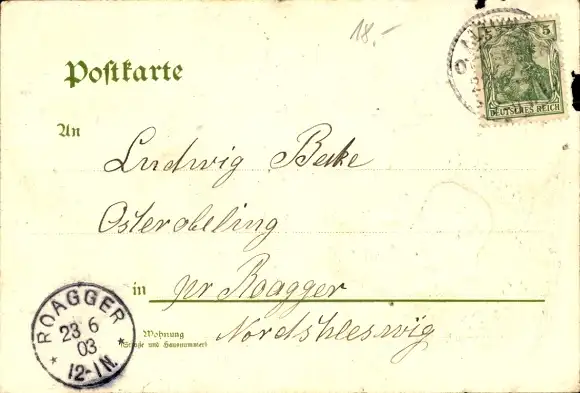 18.-
5
DEUTSCHES REICH
Postkarte
An
Ludwig Bake
Osterobeling
in pr Roagger
Wohnung
(Straße und Hausnummer)
Nordshleswig
ROAGGER
23 6
03
* 12-1N. *